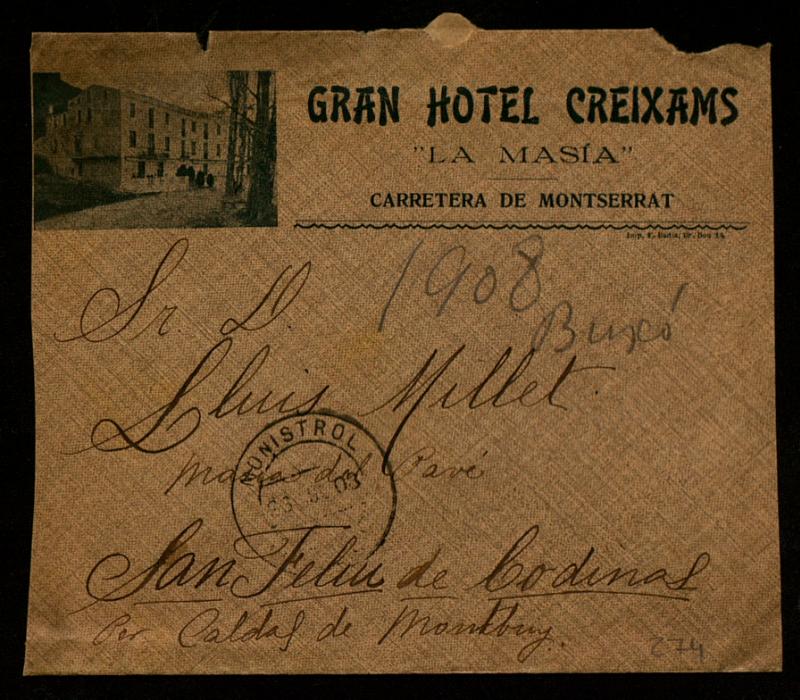 GRAN HOTEL CREIXAMS
"LA MASÍA"
CARRETERA DE MONTSERRAT
Imp. F. Badia, Dr. Dou 14
1908
Buxó
Sr. D.
Lluis Millet.
MONISTROL
Maria del Pavé
San Feliu de Codinas
Per Caldas de Montbuy.
274